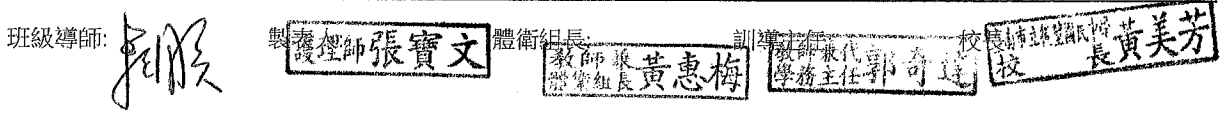 班級導師: 製表人: 護理師張寶文 體衛組長: 教師兼體衛組長黃惠梅 訓導主任: 教師兼代學務主任郭奇達 校長: 國民中學校長黃美芳